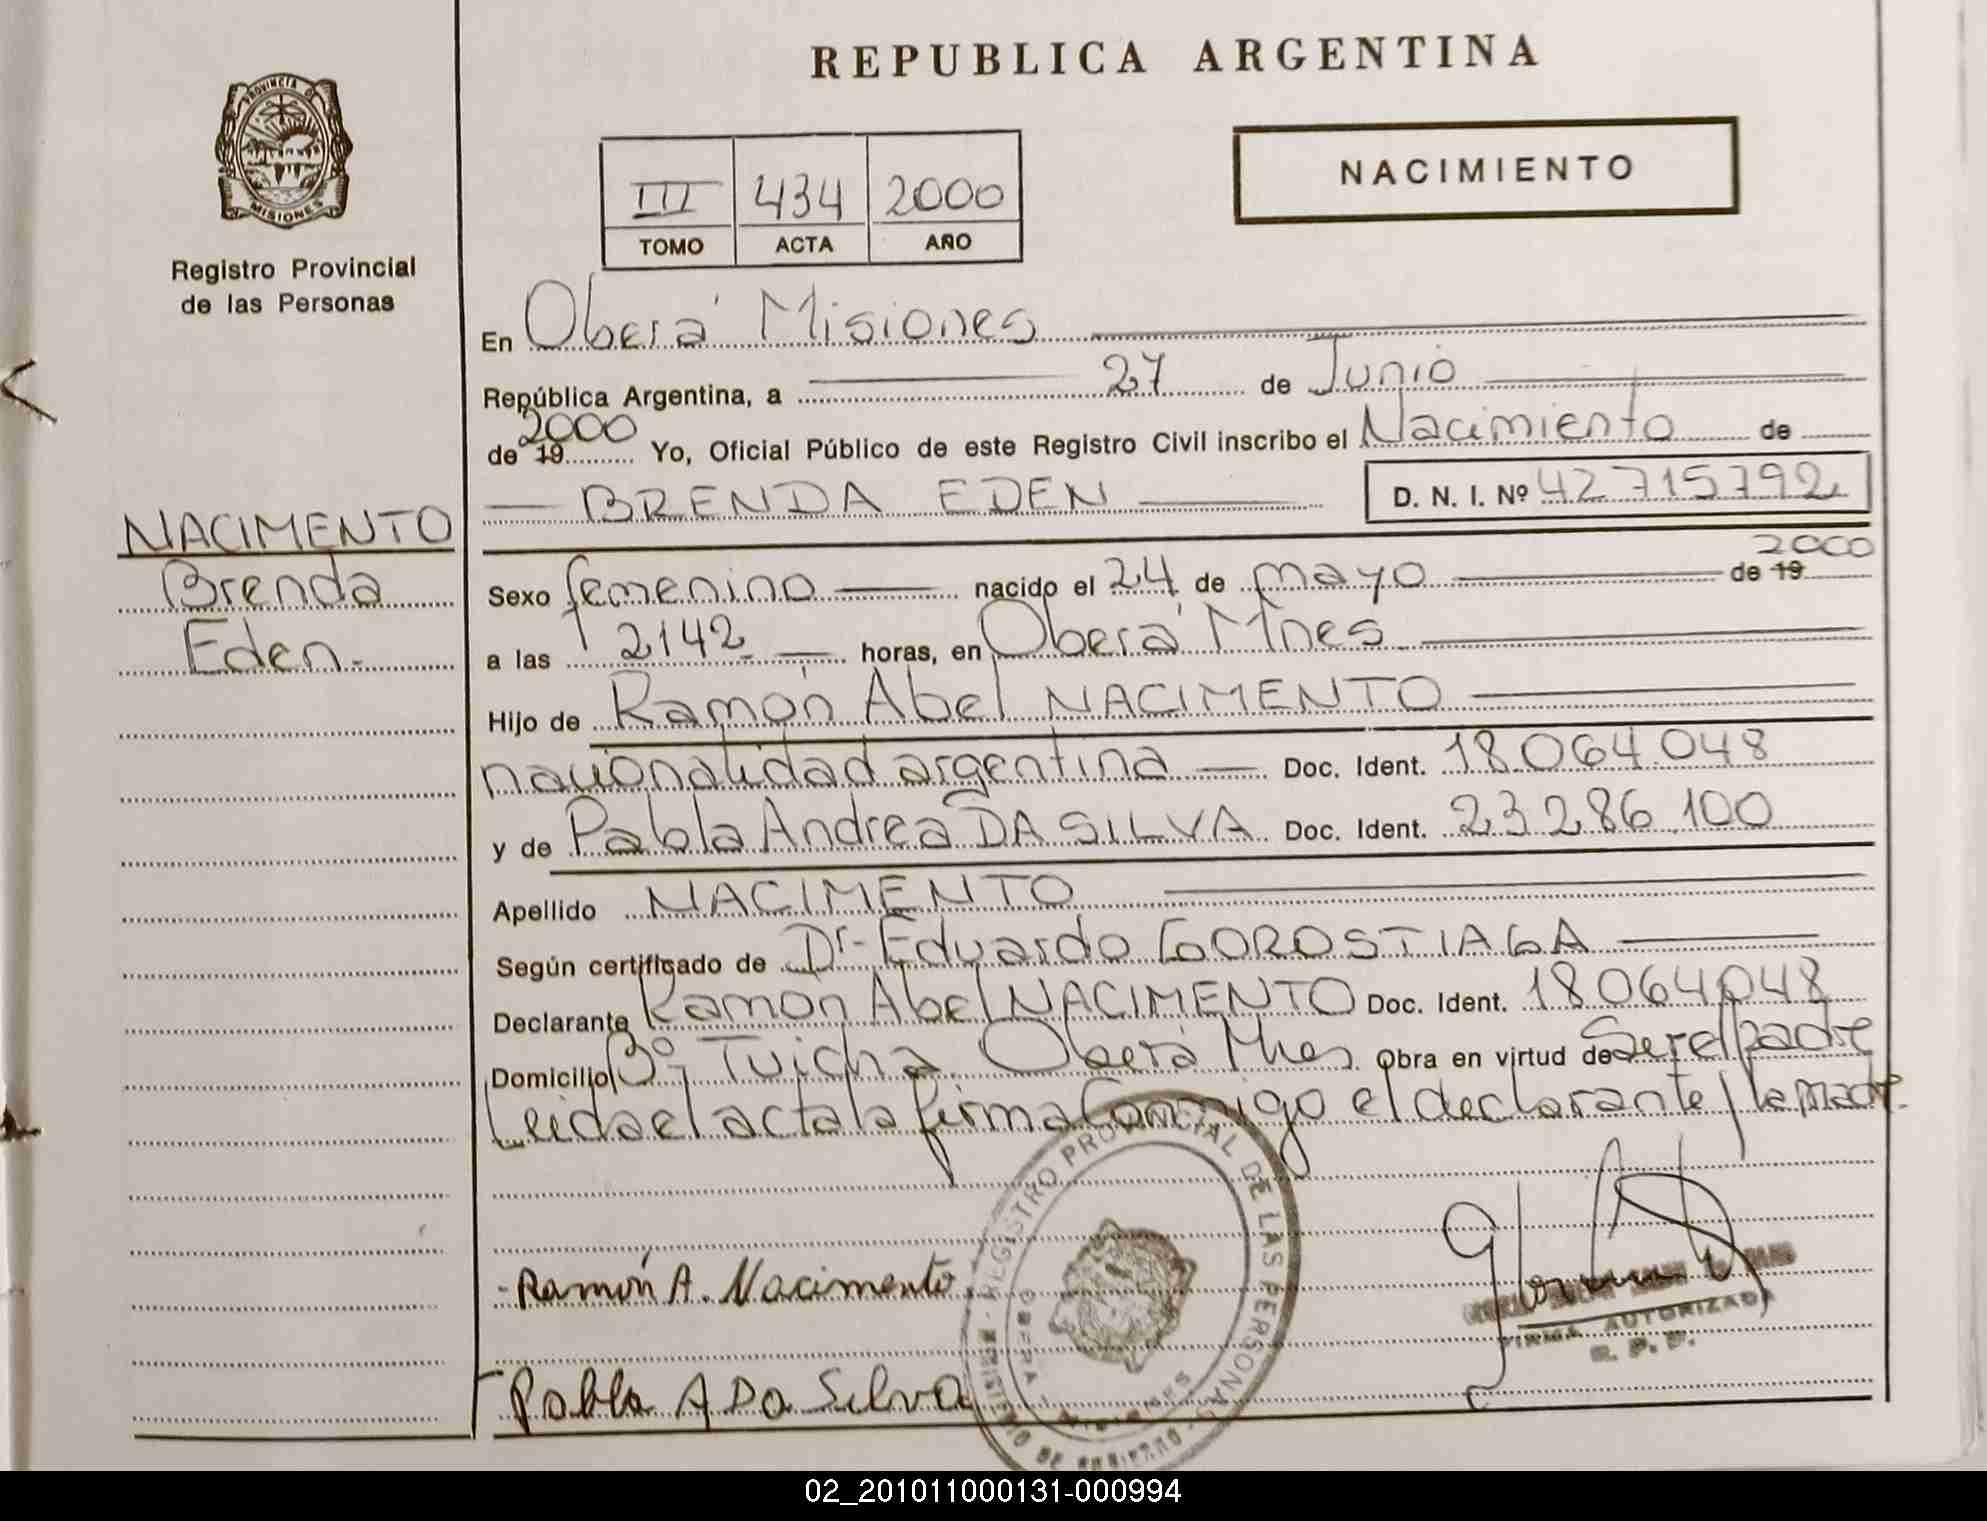 REPUBLICA ARGENTINA
PROVINCIA D
MISIONES
Registro Provincial
de las Personas
III 434 2000
TOMO ACTA AÑO
NACIMIENTO
En Oberá Misiones
República Argentina, a 27 de Junio
2000
de 19 Yo, Oficial Público de este Registro Civil inscribo el Nacimiento de
BRENDA EDEN D. N. I. Nº 42 715792
NACIMENTO
Brenda
Eden.-
2000
Sexo femenino nacido el 24 de mayo de 19
a las 2142 horas, en Oberá Mnes
Hijo de Ramón Abel NACIMENTO
nacionalidad argentina Doc. Ident. 18.064.048
y de Pabla Andrea DA SILVA Doc. Ident. 23.286.100
Apellido NACIMENTO
Según certificado de Dr- Eduardo GOROSTIAGA
Declarante Ramón Abel NACIMENTO Doc. Ident. 18064048
Domicilio Bº Tuicha Oberá Mnes Obra en virtud de Ser el padre
Leida el acta la firma Conmigo el declarante y la madre.
REGISTRO PROVINCIAL DE LAS PERSONAS
MINISTERIO DE GOBIERNO
OBERA
MISIONES
-Ramón A. Nacimento
Pabla A Da Silva
FIRMA AUTORIZADA
R. P. P.
02_201011000131-000994